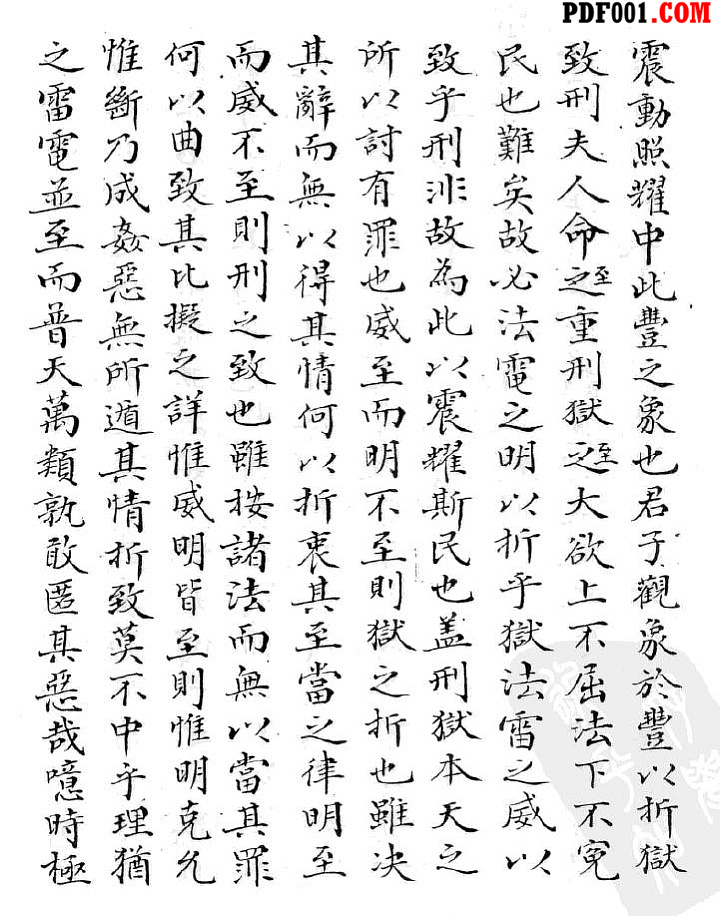 PDF001.COM
震動照耀中此豐之象也君子觀象於豐以折獄
致刑夫人命之至重刑獄之至大欲上不屈法下不冤
民也難矣故必法電之明以折乎獄法雷之威以
致乎刑非故為此以震耀斯民也盖刑獄本天之
所以討有罪也威至而明不至則獄之折也雖决
其辭而無以得其情何以折衷其至當之律明至
而威不至則刑之致也雖按諸法而無以當其罪
何以曲致其比擬之詳惟威明皆至則惟明克允
惟斷乃成姦惡無所遁其情折致莫不中乎理猶
之雷電並至而普天萬類孰敢匿其惡哉噫時極